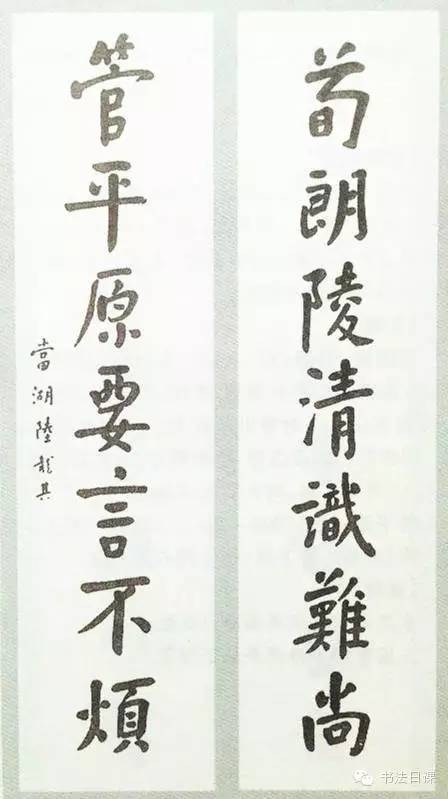 荀朗陵清識難尚
管平原要言不煩
當湖陸龍其
书法日课